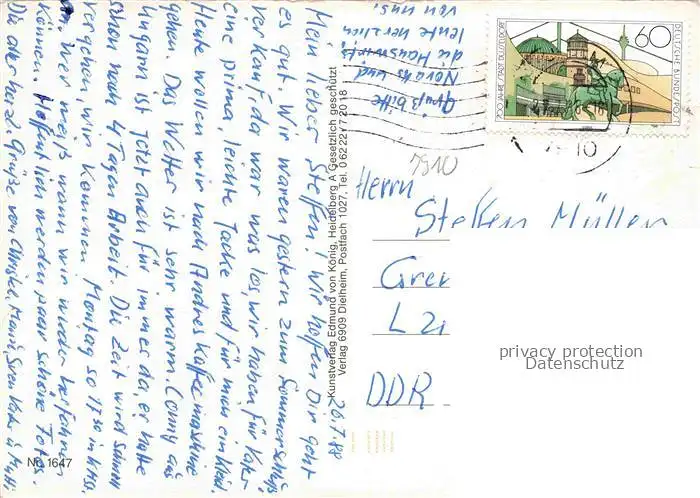 26.7.88
Mein lieber Steffen! Wir hoffen Dir geht
es gut. Wir waren gestern zum Sommerschluß
verkauf, da war was los, wir haben für Vater
eine prima, leichte Jacke und für mich ein Kleid.
Heute wollen wir nach Andres Kaffeemaschine
gehen. Das Wetter ist sehr warm. Conny aus
Ungarn ist jetzt auch für immer da, er hatte
schon nach 4 Tagen Arbeit. Die Zeit wird schnell
vergehen, wir kommen Montag so 17.30 in
wer weiß wann wir wieder herfahren
können. Hoffentlich werden paar schöne Fotos.
Die aller herzl. Grüße von Christel, Mario, Sven Vater u. Mutti
Grüß bitte
Noraks und
die Hauswirts
leute herzlich
von uns.
Kunstverlag Edmund von König, Heidelberg A Gesetzlich geschützt
Verlag 6909 Dielheim, Postfach 1027, Tel. 06222/72018
Nr. 1647
700 JAHRE STADT DÜSSELDORF
60
DEUTSCHE BUNDESPOST
7910
Herrn
Steffen Müller
DDR
privacy protection
Datenschutz